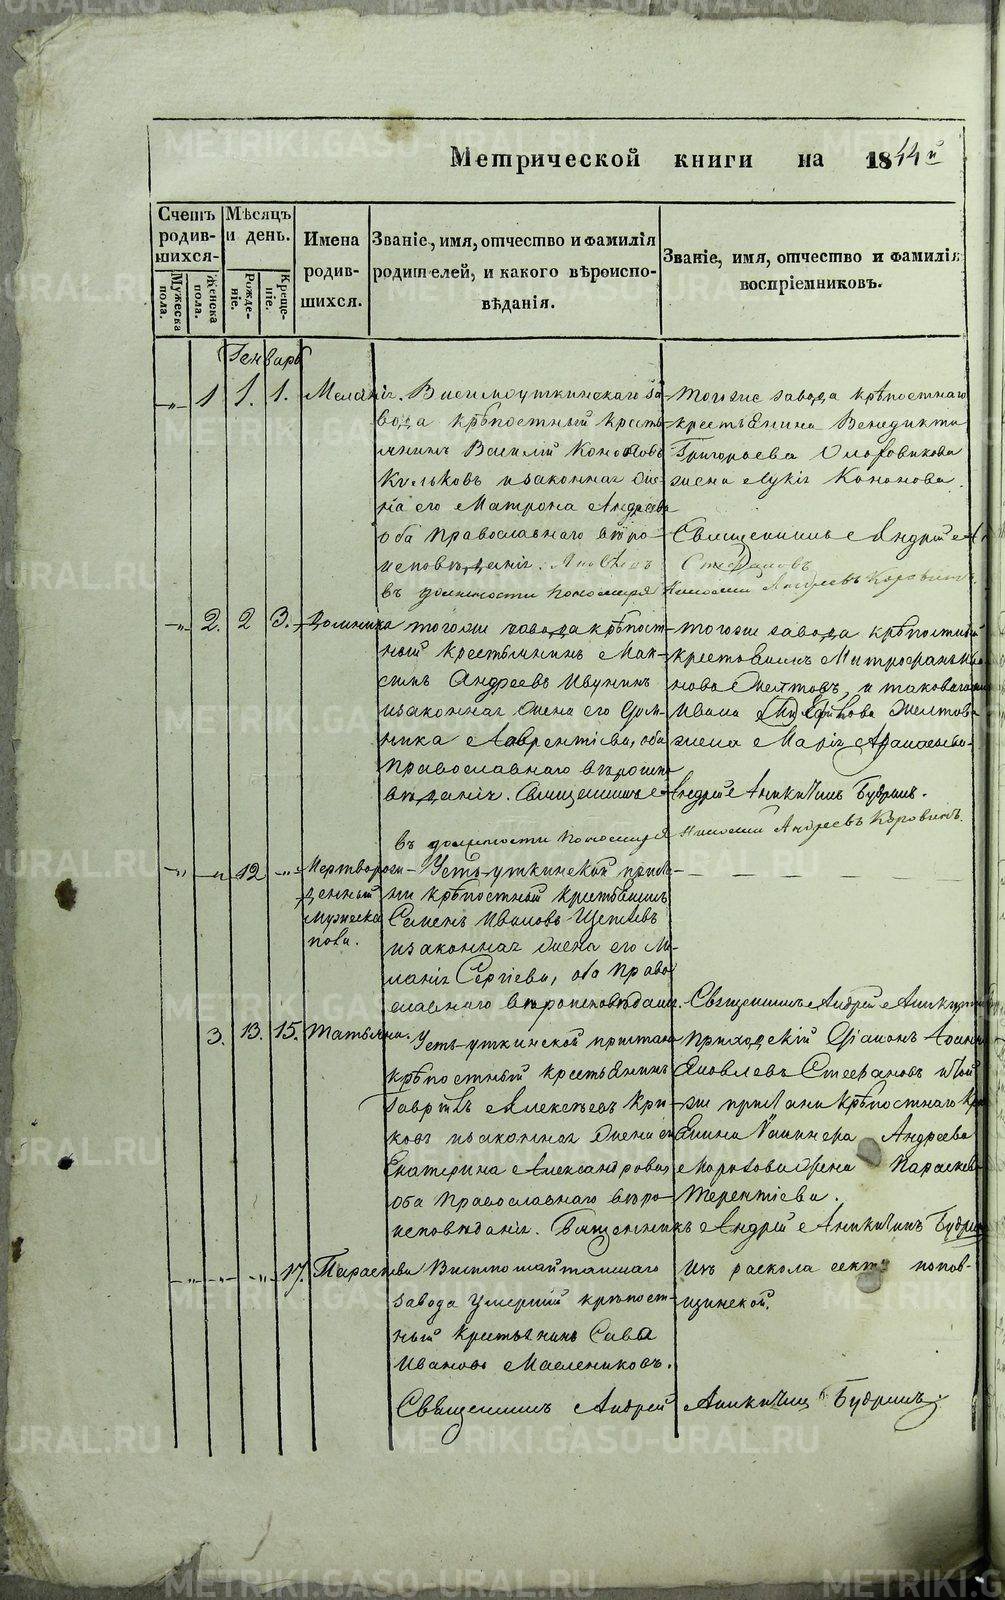 Метрической книги на 1844й
Счетъ родившихся.
Мѣсяцъ и день.
Имена родившихся.
Званіе, имя, отчество и фамилія родителей, и какого вѣроисповѣданія.
Званіе, имя, отчество и фамилія воспріемниковъ.
Мужеска пола.
Женска пола.
Рожденіе.
Крещеніе.
Генварь
-"- 1 1. 1. Меланія.
Висимоуткинскаго за-
вода крѣпостный кресть-
янинъ Василій Кононовъ
Кульковъ и законная же-
на его Матрона Андреева
оба православнаго вѣро-
исповѣданія.
въ должности пономаря
тогоже завода крѣпостнаго
крестьянина Венедикта
Григорьева
жена Лукія Кононова.
Священникъ Андрей
Стефановъ
Николай Андреевъ Коровинъ
-"- 2. 2 3. Домника
тогоже завода крѣпост-
ный крестьянинъ Мак-
симъ Андреевъ Ивунинъ
и законная жена его Дом-
ника Лаврентіева, оба
православнаго вѣроиспо-
вѣданія. Священникъ
въ должности пономаря
тогоже завода крѣпостный
крестьянинъ Митрофанъ
новъ Желтовъ, и таковагоже
Ивана Желтова
жена Марія Афанасьева.
Андрей Аникичинъ Будринъ.
Николай Андреевъ Коровинъ.
-"- -"- 12 -"- Мертворож-
денный
мужеска
пола.
Усть-уткинской приста-
ни крѣпостный крестьянинъ
Семенъ Ивановъ Щепаевъ
и законная жена его Ме-
ланія Сергіева, оба право-
славнаго вѣроисповѣданія.
Священникъ Андрей Аникичинъ
3. 13. 15. Татьяна.
Усть-уткинской пристани
крѣпостный крестьянинъ
Гаврілъ Алексѣевъ Крю-
ковъ и законная жена его
Екатерина Александрова,
оба православнаго вѣро-
исповѣданія. Священникъ Андрей Аникичинъ Будринъ
Приходскій Діаконъ Іоаннъ
Яковлевъ Стефановъ и той
же пристани крѣпостнаго кре-
стьянина Андреева
Морозова жена Параскева
Терентіева.
-"- -"- -"- 17. Параскева
Висимошайтанскаго
завода умершій крѣпост-
ный крестьянинъ Сава
Ивановъ Маслениковъ.
Изъ раскола секты попов-
щинской.
Священникъ Андрей Аникичинъ Будринъ.
METRIKI.GASO-URAL.RU